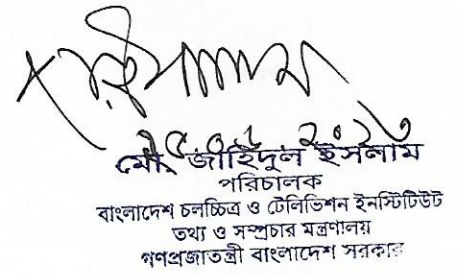 মোঃ জাহিদুল ইসলাম
পরিচালক
বাংলাদেশ চলচ্চিত্র ও টেলিভিশন ইনস্টিটিউট
তথ্য ও সম্প্রচার মন্ত্রণালয়
গণপ্রজাতন্ত্রী বাংলাদেশ সরকার